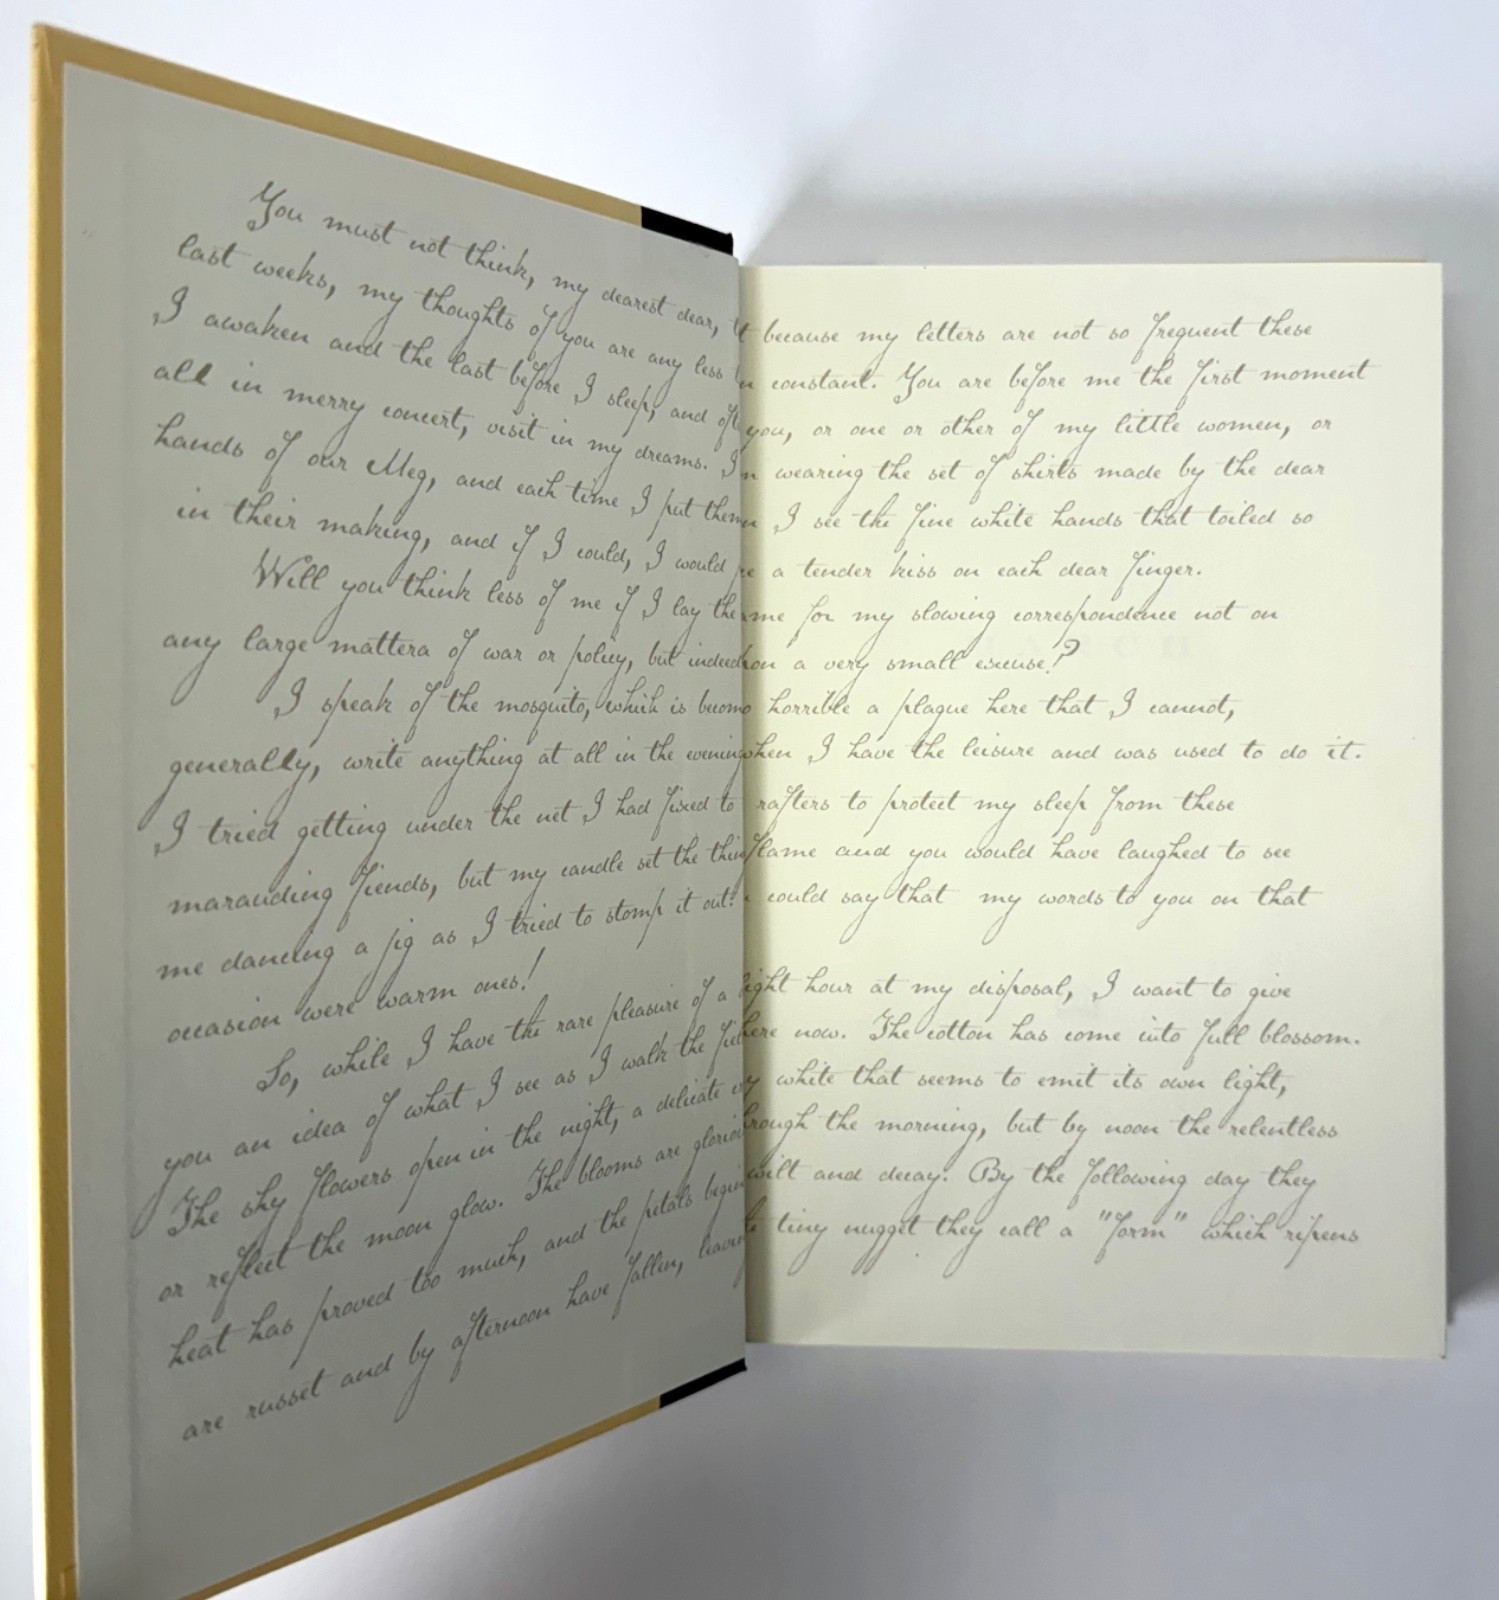 You must not think, my dearest dear, because my letters are not so frequent these
last weeks, my thoughts of you are any less constant. You are before me the first moment
I awaken and the last before I sleep, and you, or one or other of my little women, or
all in merry concert, visit in my dreams. wearing the set of shirts made by the dear
hands of our Meg, and each time I put them I see the fine white hands that toiled so
in their making, and if I could, I would a tender kiss on each dear finger.
Will you think less of me if I lay the for my slowing correspondence not on
any large matters of war or policy, but indeed on a very small excuse?
I speak of the mosquito, which is horrible a plague here that I cannot,
generally, write anything at all in the evening when I have the leisure and was used to do it.
I tried getting under the net I had fixed to rafters to protect my sleep from these
marauding fiends, but my candle set the thing flame and you would have laughed to see
me dancing a jig as I tried to stomp it out! could say that my words to you on that
occasion were warm ones!
So, while I have the rare pleasure of a hour at my disposal, I want to give
you an idea of what I see as I walk the here now. The cotton has come into full blossom.
The shy flowers open in the night, a delicate white that seems to emit its own light,
or reflect the moon glow. The blooms are through the morning, but by noon the relentless
heat has proved too much, and the petals begin wilt and decay. By the following day they
are russet and by afternoon have fallen, tiny nugget they call a "form" which ripens